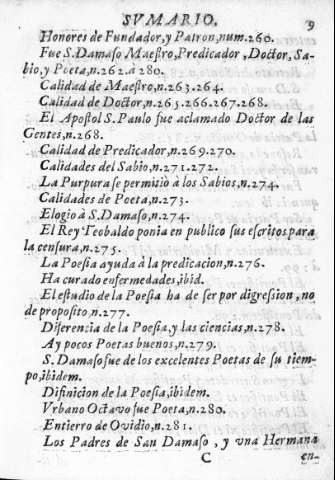 SVMARIO. 9
Honores de Fundador, y Patron, num. 260.
Fue S. Damaso Maestro, Predicador, Doctor, Sa-
bio, y Poeta, n. 262. à 280.
Calidad de Maestro, n. 263. 264.
Calidad de Doctor, n. 265. 266. 267. 268.
El Apostol S. Paulo fue aclamado Doctor de las
Gentes, n. 268.
Calidad de Predicador, n. 269. 270.
Calidades del Sabio, n. 271. 272.
La Purpura se permitiò à los Sabios, n. 274.
Calidades de Poeta, n. 273.
Elogio à S. Damaso, n. 274.
El Rey Teobaldo ponia en publico sus escritos para
la censura, n. 275.
La Poesia ayuda à la predicacion, n. 276.
Ha curado enfermedades, ibid.
El estudio de la Poesia ha de ser por digression, no
de proposito, n. 277.
Diferencia de la Poesia, y las ciencias, n. 278.
Ay pocos Poetas buenos, n. 279.
S. Damaso fue de los excelentes Poetas de su tiem-
po, ibidem.
Difinicion de la Poesia, ibidem.
Vrbano Octavo fue Poeta, n. 280.
Entierro de Ovidio, n. 281.
Los Padres de San Damaso, y vna Hermana
C en-